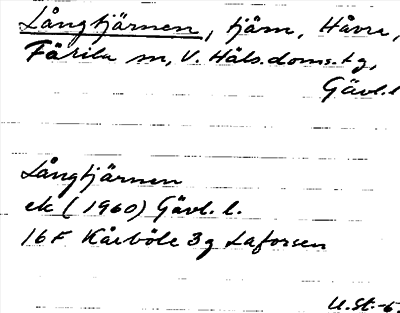 Långtjärnen, tjärn, Håvre,
Färila sn, V. Häls. doms. tg,
Gävl. l
Långtjärnen
ek (1960) Gävl. l.
16F Kårböle 3g Laforsen
U.St.-6.